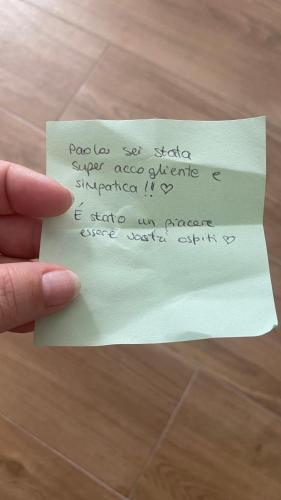 Paola sei stata
super accogliente e
simpatica!! ♡
È stato un piacere
essere vostri ospiti ♡